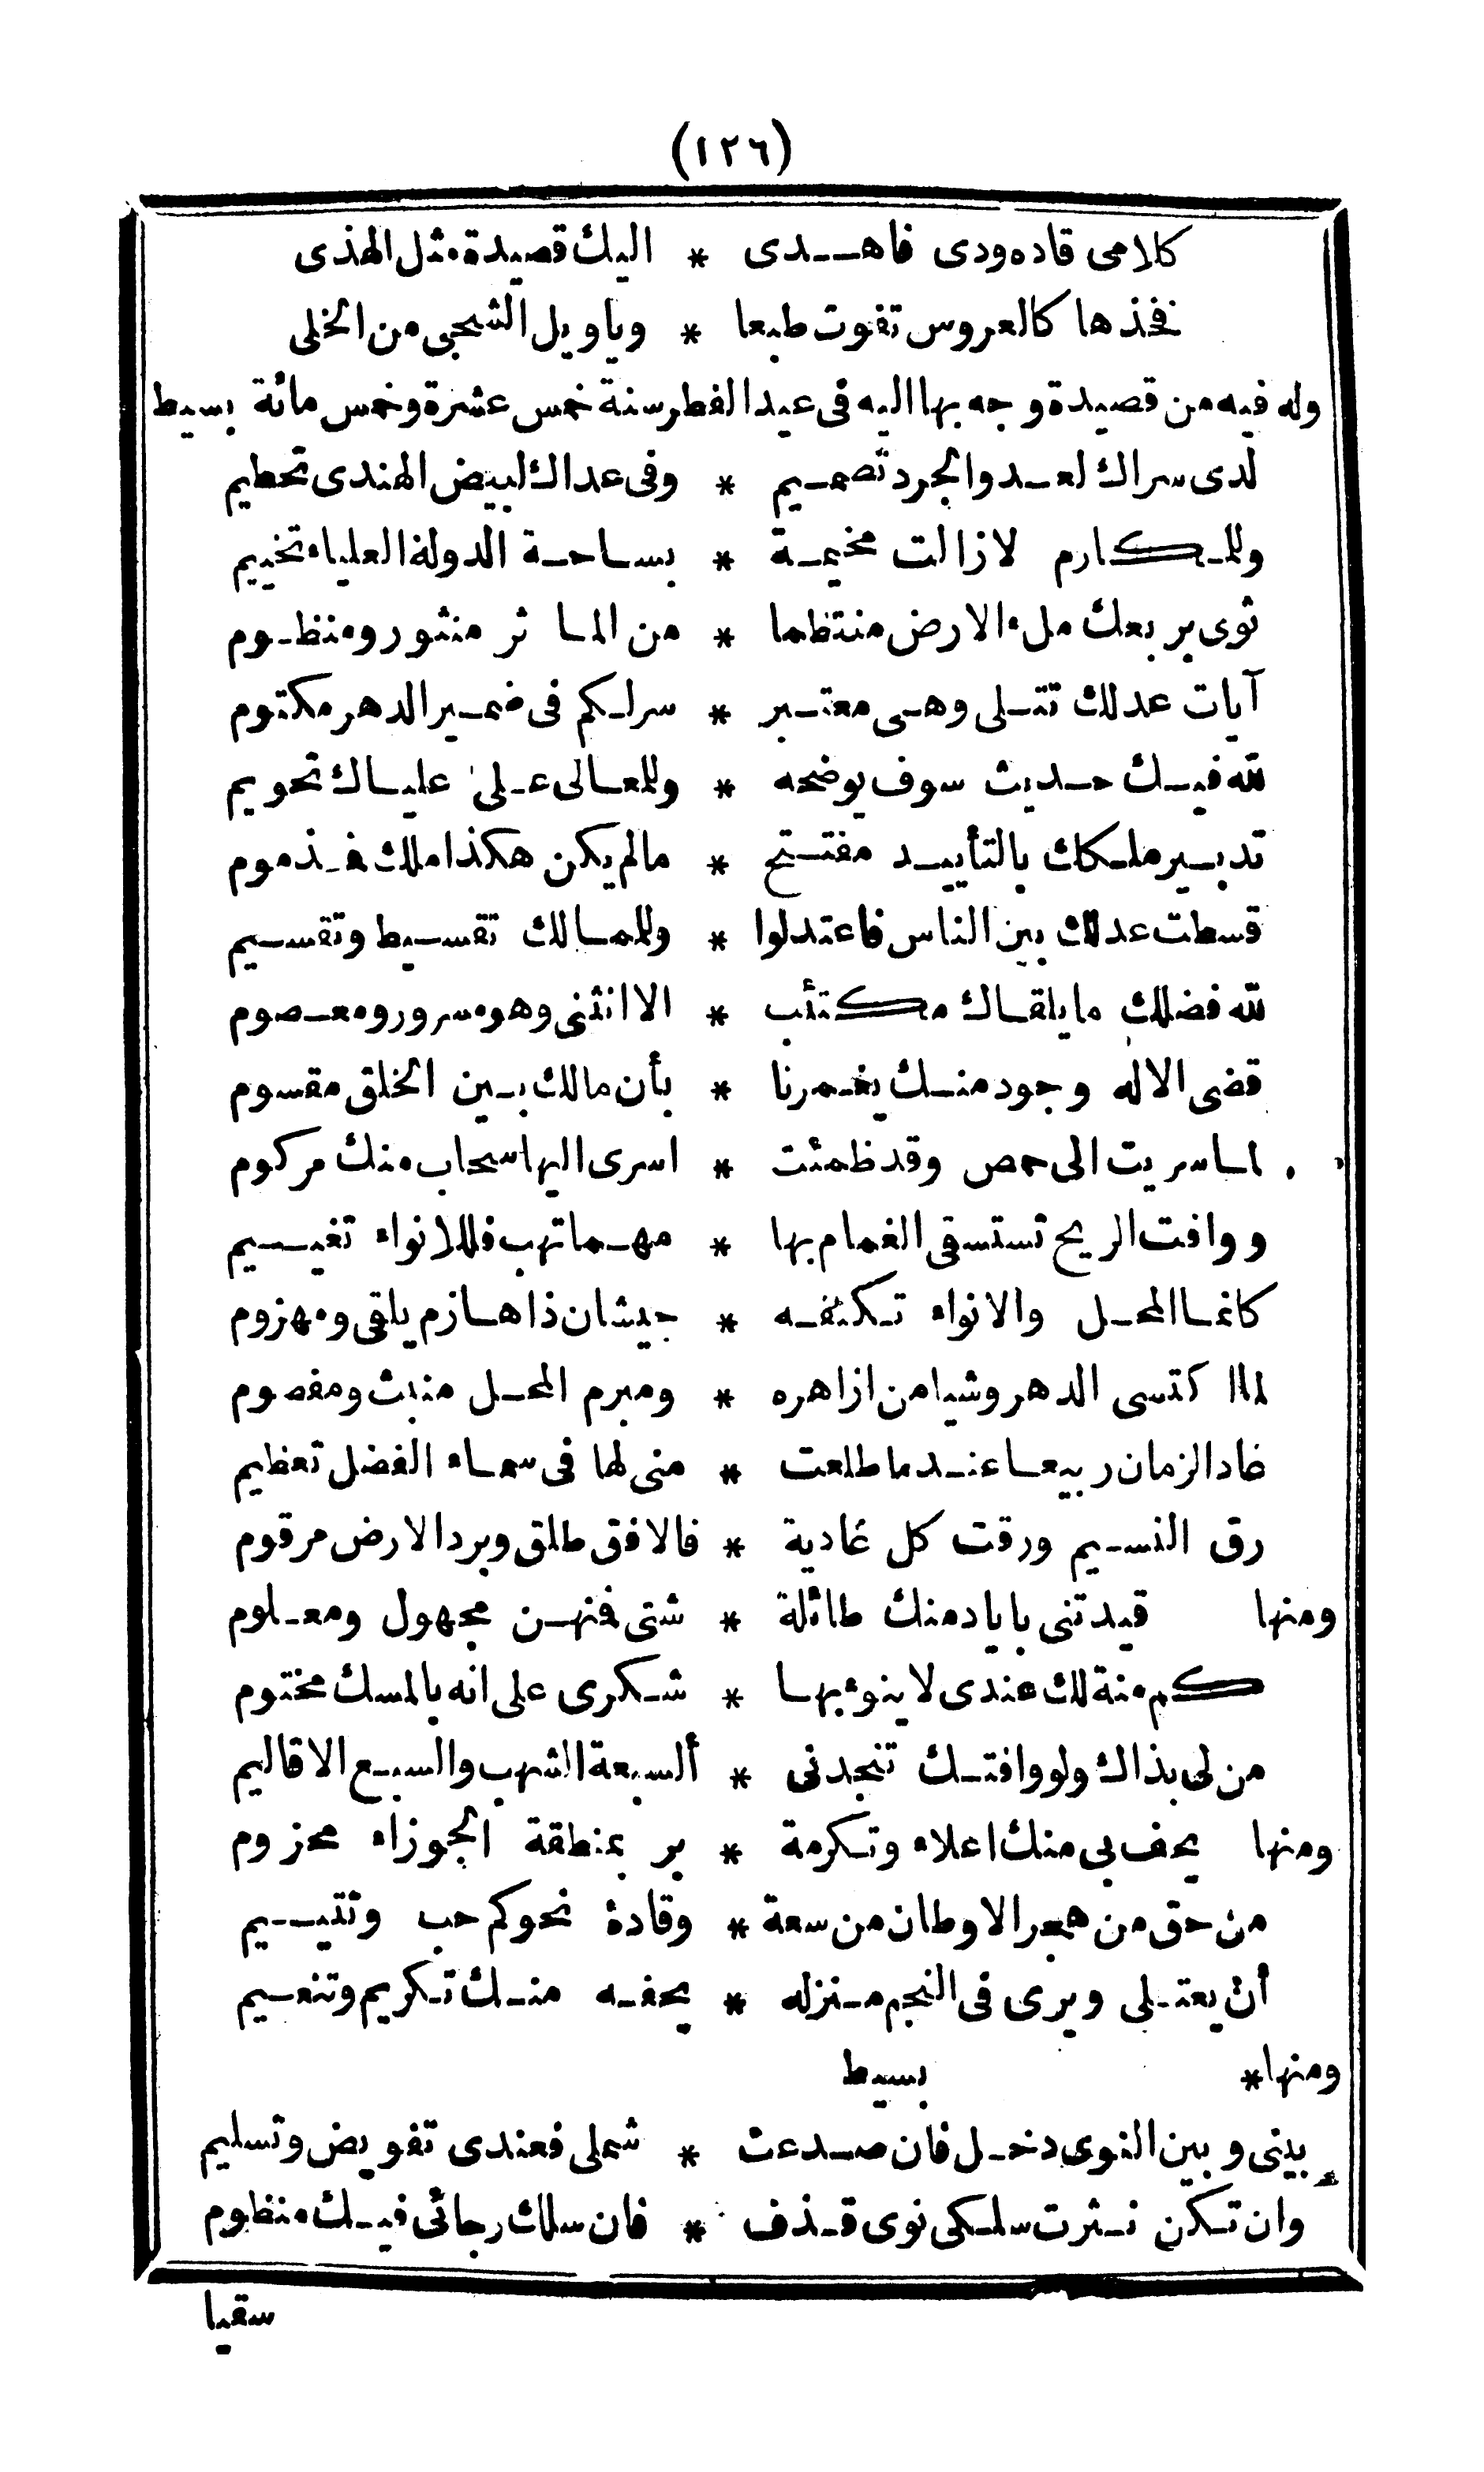 (١٢٦)
كلامى قاده ودى فاهدى * اليك قصيدة مثل الهذى
فخذها كالعروس تفوت طبعا * وياويل الشجى من الخلى
وله فيه من قصيدة وجه بها اليه فى عيد الفطر سنة خمس عشرة وخمس مائة بسيط
لدى سراك لعدو الجرد تصميم * وفى عداك لبيض الهندى تحطيم
وللمكارم لازالت مخيمة * بساحة الدولة العلياء تخييم
ثوى بربعك ملء الارض منتظما * من المآثر منثور ومنظوم
آيات عدلك تتلى وهى معتبر * سرا لكم فى ضمير الدهر مكتوم
لله فيك حديث سوف يوضحه * وللمعالى على علياك تحويم
تدبير ملكك بالتأييد مفتتح * مالم يكن هكذا ملك فمذموم
قسطت عدلك بين الناس فاعتدلوا * وللممالك تقسيط وتقسيم
لله فضلك ما يلقاك مكتئب * الا انثنى وهو مسرور ومعصوم
قضى الاله وجود منك يغمرنا * بأن مالك بين الخلق مقسوم
لما سريت الى حمص وقد ظمئت * اسرى اليها سحاب منك مركوم
ووافت الريح تستسقى الغمام بها * مهما تهب فللانواء تغييم
كانما المحل والانواء تكنفه * جيشان ذا هازم يلقى ومهزوم
لما اكتسى الدهر وشيا من ازاهره * ومبرم المحل منبث ومفصوم
عاد الزمان ربيعا عند ما طلعت * منى لها فى سماء الفضل تعظيم
رق النسيم ورقت كل غادية * فالافق طلق وبرد الارض مرقوم
ومنها قيدتنى باياد منك طائلة * شتى فمنهن مجهول ومعلوم
كم منة لك عندى لا ينوء بها * شكرى على انه بالمسك مختوم
من لى بذاك ولو وافتك تنجدنى * ألسبعة الشهب والسبع الاقاليم
ومنها يحف بى منك اعلاء وتكرمة * بر بمنطقة الجوزاء محزوم
من حق من هجر الاوطان من سعة * وقادة نحوكم حب وتتييم
أن يعتلى ويرى فى النجم منزله * يحفه منك تكريم وتنعيم
ومنها* بسيط
بينى وبين النوى دخل فان صدعت * شملى فعندى تفويض وتسليم
وان تكن نثرت سلكى نوى قذف * فان سلك رجائى فيك منظوم
سقيا